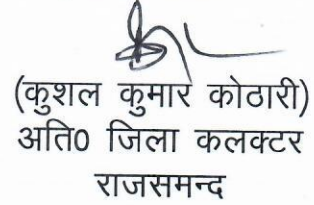 (कुशल कुमार कोठारी)
अति0 जिला कलक्टर
राजसमन्द